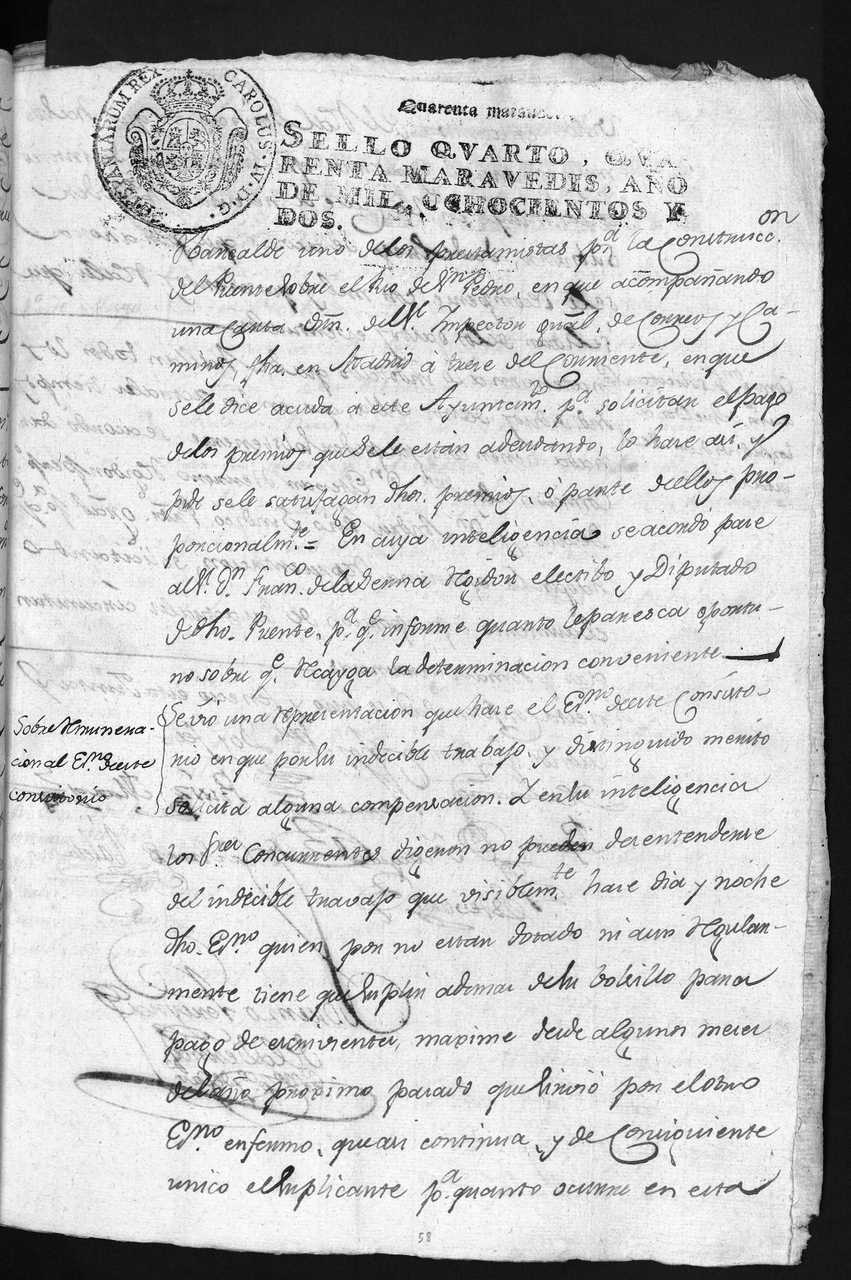 HISPANIARUM REX CAROLUS·IV·D·G·
Quarenta marave
SELLO QVARTO, QVA-
RENTA MARAVEDIS, AÑO
DE MIL OCHOCIENTOS Y
DOS.
uno delos prestamistas pa. la Construccon.
del Puente sobre el Rio de Sn. Pedro, en que acompañando
una Carta Orn. del Sr. Inspector Gral. de Correos y Ca-
minos, fha. en Madrid á trese del Corriente, en que
sele dice acuda á este Ayuntamto. pa. solicitar el pago
delos premios que sele están adeudando, lo hace asi, y
pide sele satisfagan dhos. premios, ó parte de ellos pro-
porcionalmte. = En cuya inteligencia se acordó pase
al Sr. Dn. Franco. dela Serna Regidor electibo y Diputado
de dho. Puente, pa. qe. informe quanto leparesca oportu-
no sobre qe. recayga la determinacion conveniente
Sobre remunera-
cion al Esno. deeste
consistorio
Se vió una representacion que hace el Esno. deeste Consisto-
rio en que por su indecible trabajo, y distinguido merito
solicita alguna compensacion. Y en su inteligencia
los Sres. Concurrentes digeron no pueden desentenderse
del indecible travajo que visiblemte. hace dia y noche
dho. Esno. quien por no estar dotado ni aun regular-
mente tiene que suplir ademas de su bolsillo para
pago de escrivientes, maxime desde algunos meses
del año proximo pasado que sirvió por el otro
Esno. enfermo, que asi continua, y de Consiguiente
unico el suplicante pa. quanto ocurre en esta
58